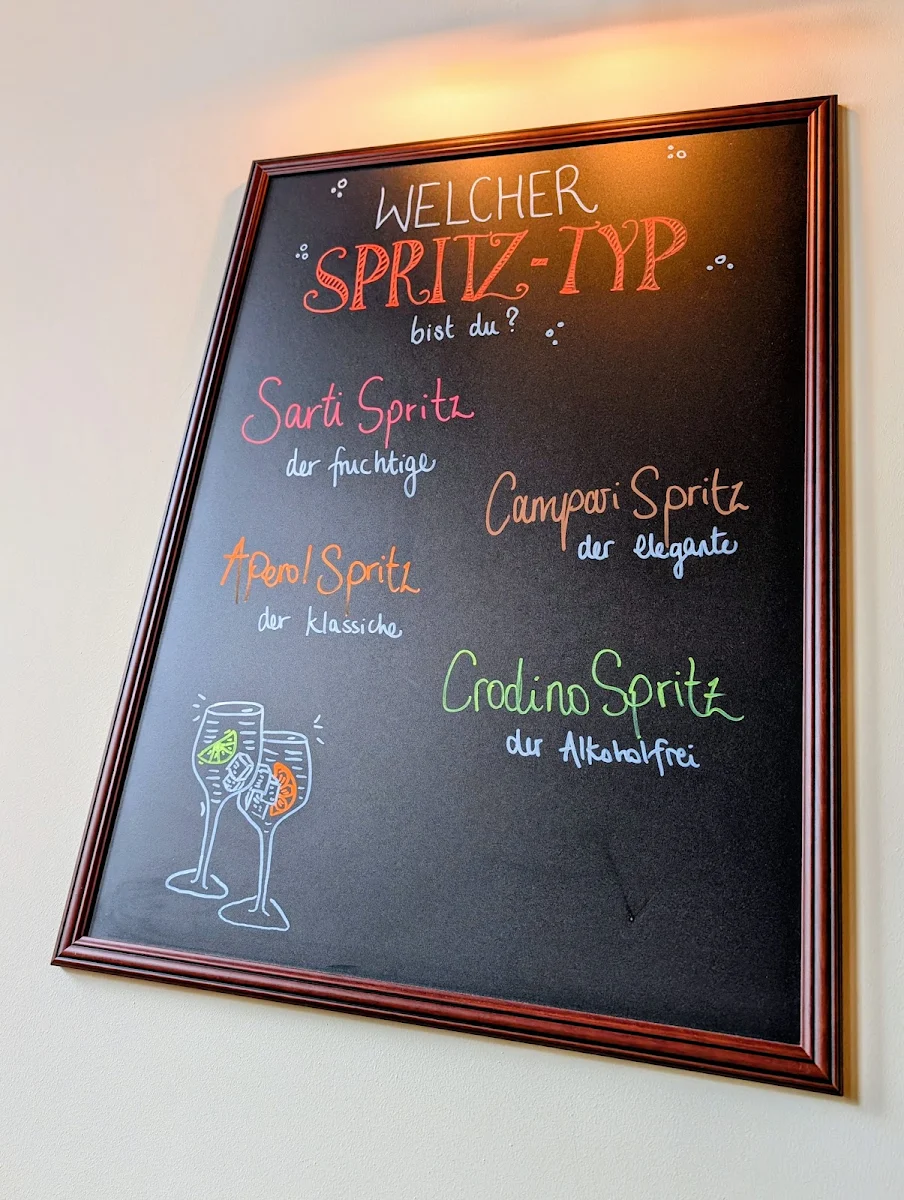 WELCHER
SPRITZ-TYP
bist du?
Sarti Spritz
der fruchtige
Campari Spritz
der elegante
Aperol Spritz
der klassiche
Crodino Spritz
der Alkoholfrei